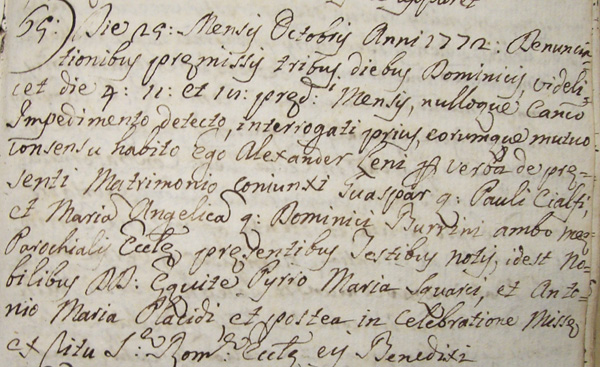 65: Die 25: Mensis Octobris Anni 1772: Denuncia-
tionibus premissis tribus diebus Dominicis, videli
cet die 4: 11: et 18: pred: Mensis, nulloque Canco
Impedimento detecto, interrogati prius, eorumque mutuo
consensu habito Ego Alexander Leni p verba de pre-
senti Matrimonio coniunxi Guaspar q: Pauli Cialfi,
et Maria Angelica q: Dominici Burrini ambo meę
Parochialis Eccłę presentibus Testibus notis, idest No-
bilibus DD: Equite Pyrro Maria Squarci, et Anto-
nio Maria Placidi, et postea in celebratione Missę
ex Ritu S: Rom: Eccłę eis Benedixi